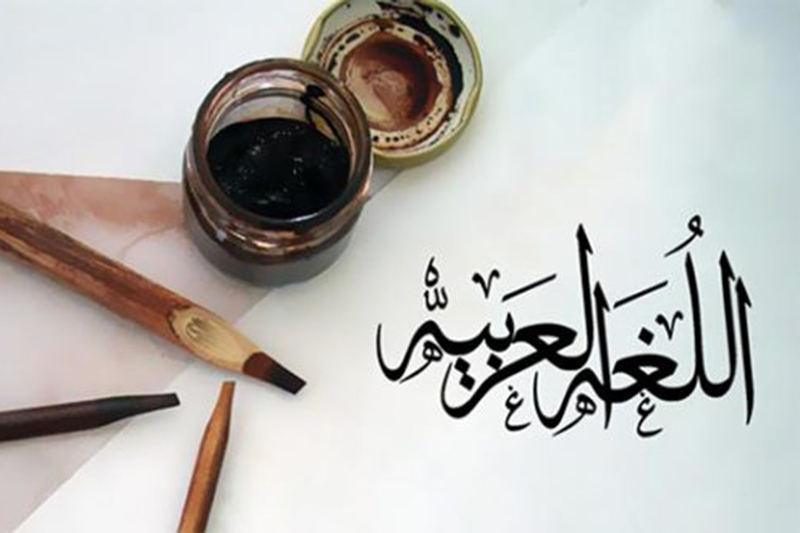 اللُغَة العَربية